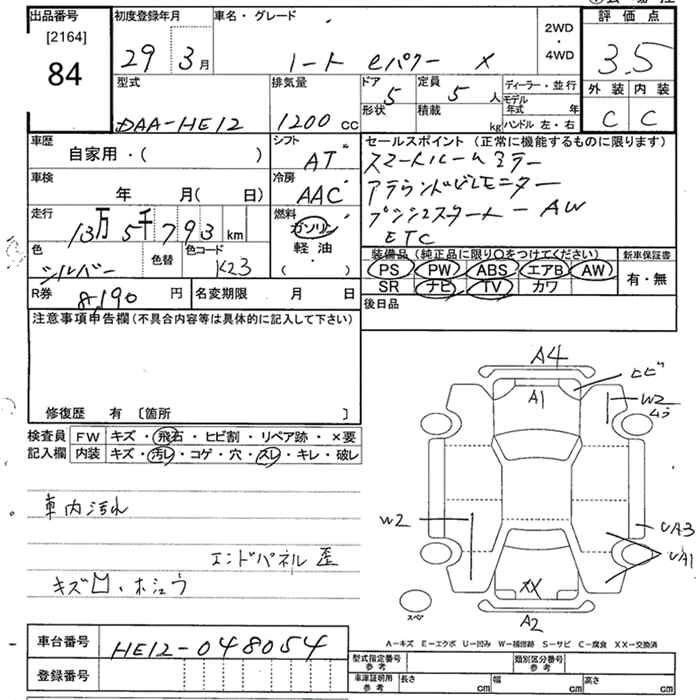 出品番号
[2164]
84
初度登録年月
29 3月
車名・グレード
ノート eパワー X
2WD
・
4WD
評価点
3.5
外装 内装
C C
型式
DAA-HE12
排気量
1200 cc
ドア 5
形状
定員 5 人
積載 kg
ディーラー・並行
モデル年式 年
ハンドル 左・右
車歴
自家用・( )
シフト
AT
車検
年 月( 日)
冷房
AAC
走行
13万5千793 km
燃料
ガソリン
軽油
・
色
シルバー
色替
色コード
K23
R券 8,190 円
名変期限 月 日
セールスポイント(正常に機能するものに限ります)
スマートルームミラー
アラウンドビューモニター
プッシュスタート - AW
ETC
装備品(純正品に限り○をつけてください)
PS PW ABS エアB AW
SR ナビ TV カワ
新車保証書
有・無
後日品
注意事項申告欄(不具合内容等は具体的に記入して下さい)
修復歴 有 〔箇所 〕
検査員記入欄
FW キズ・飛石・ヒビ割・リペア跡・×要
内装 キズ・汚レ・コゲ・穴・スレ・キレ・破レ
車内汚れ
エンドパネル歪
キズ凹・ホシュウ
A4
ヒビ
A1
W2
ムラ
W2
UA3
UA1
XX
A2
スペア
A-キズ E-エクボ U-凹み W-補修跡 S-サビ C-腐食 XX-交換済
車台番号
HE12-048054
登録番号
型式指定番号 参考
類別区分番号 参考
車庫証明用 参考
長さ cm 幅 cm 高さ cm